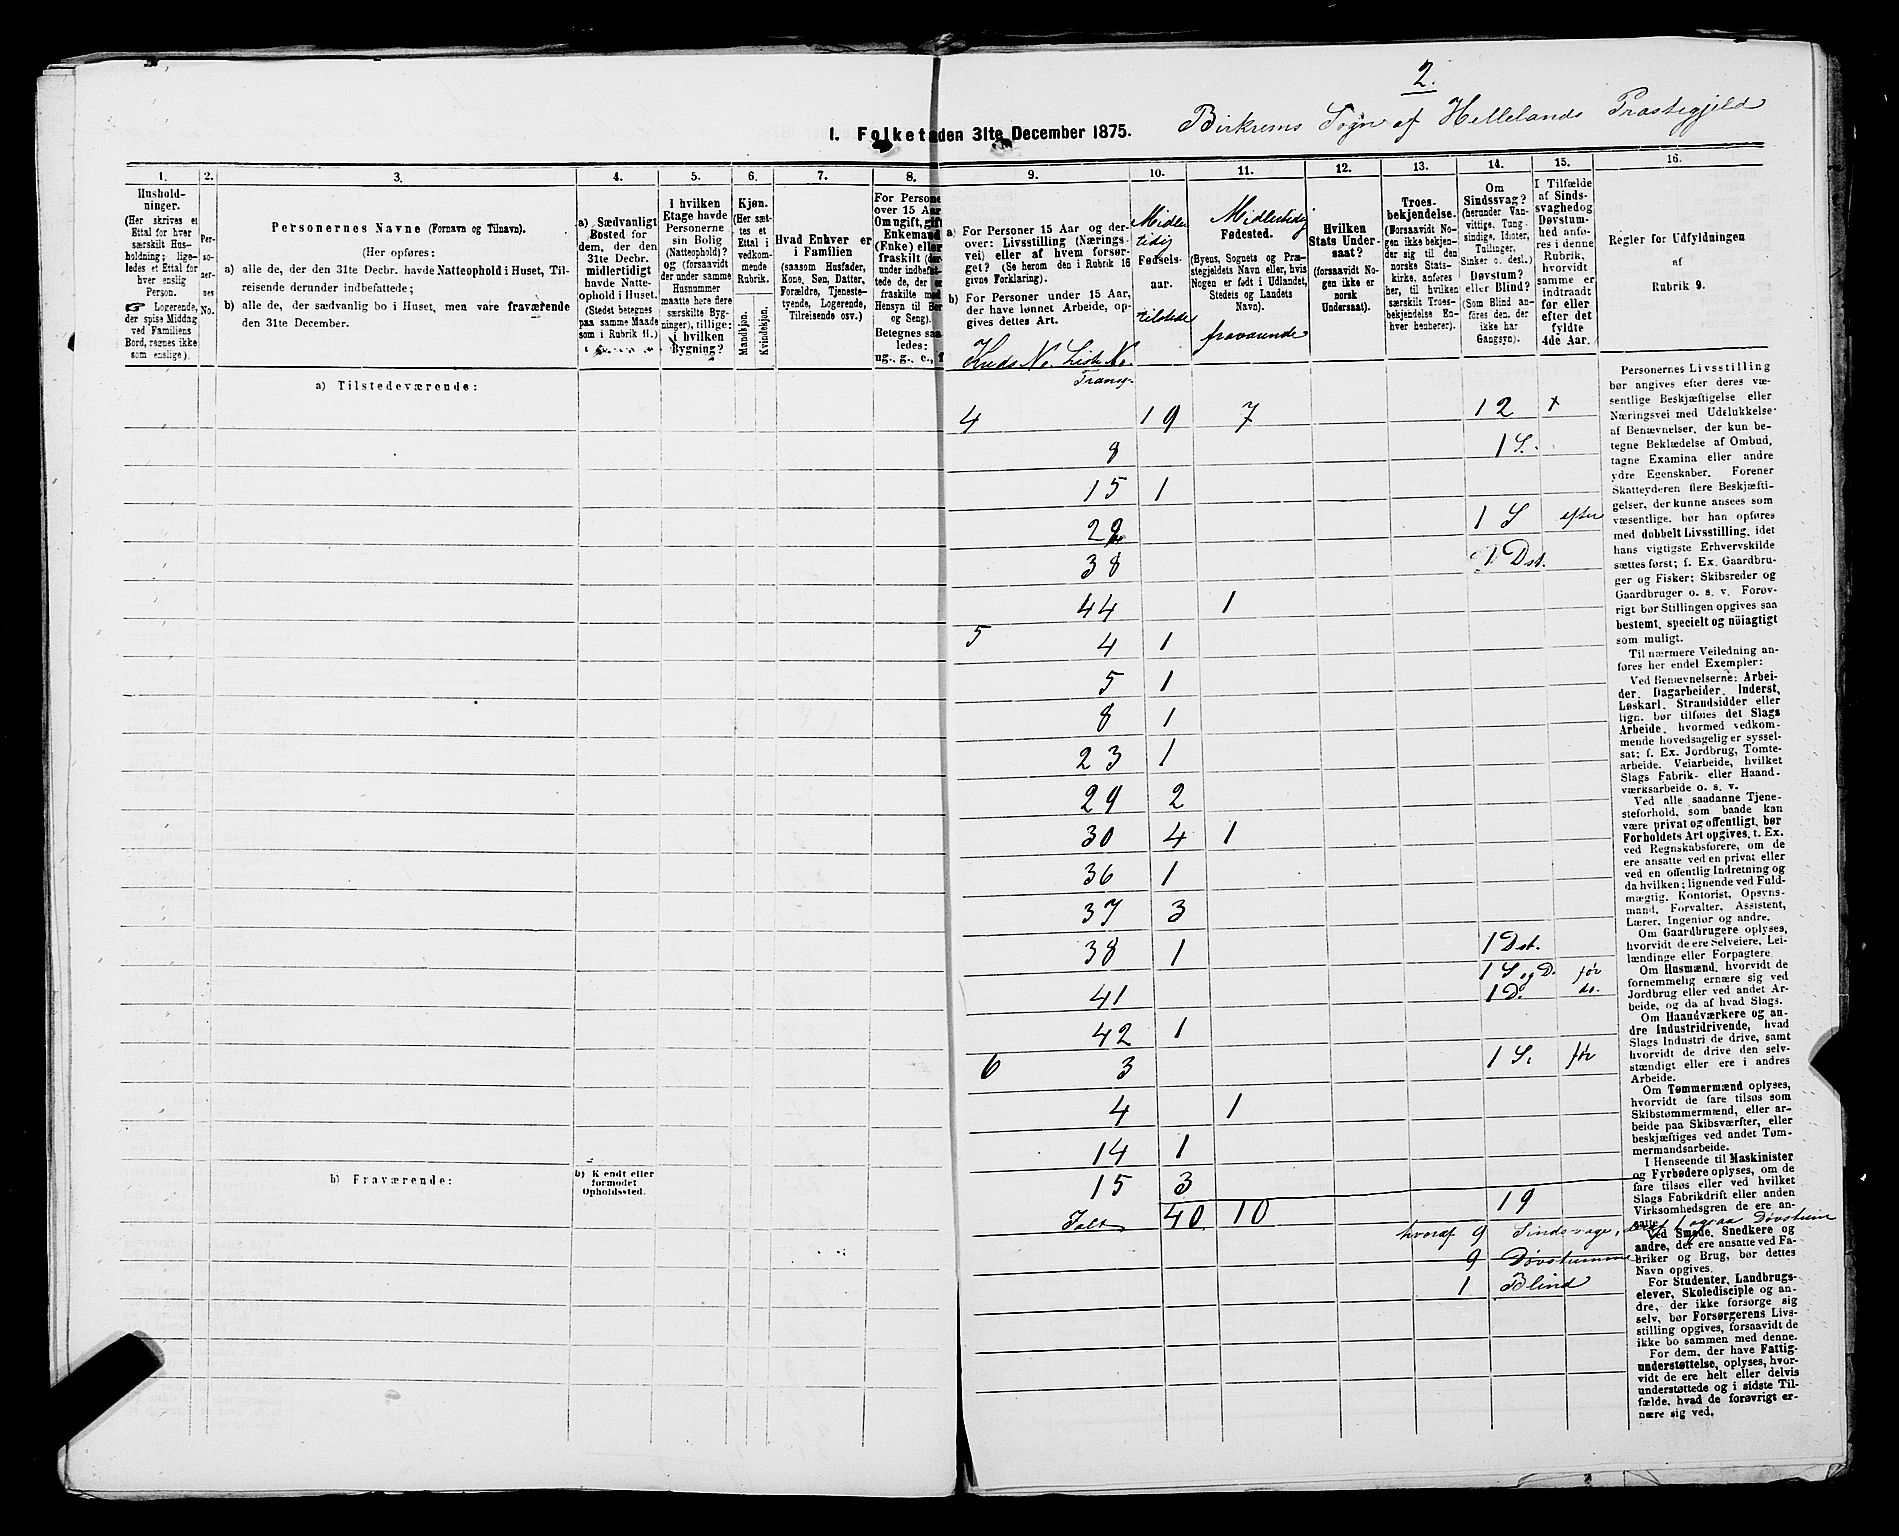 2.
Birkrems Sogn af Hellelands Præstegjeld
I. Folketa den 31te December 1875.
1.
Hushold-
ninger.
(Her skrives et
Ettal for hver
særskilt Hus-
holdning; lige-
ledes et Ettal for
hver enslig
Person.
Logerende,
der spise Middag
ved Familiens
Bord, regnes ikke
som enslige).
2.
Per-
so-
ner-
nes
No.
3.
Personernes Navne (Fornavn og Tilnavn).
(Her opføres:
a) alle de, der den 31te Decbr. havde Natteophold i Huset, Til-
reisende derunder indbefattede;
b) alle de, der sædvanlig bo i Huset, men vare fraværende
den 31te December.
4.
a) Sædvanligt
Bosted for
dem, der den
31te Decbr.
midlertidigt
havde Natte-
ophold i Huset.
(Stedet betegnes
paa samme Maade
som i Rubrik 11.)
5.
I hvilken
Etage havde
Personerne
sin Bolig
(Natteophold)?
og (forsaavidt
der under samme
Husnummer
maatte høre flere
særskilte Byg-
ninger), tillige:
i hvilken
Bygning?
6.
Kjøn.
(Her sæt-
tes et
Ettal i
vedkom-
mende
Rubrik.
Mandkjøn.
Kvindekjøn.
7.
Hvad Enhver er
i Familien
(saasom Husfader,
Kone, Søn, Datter,
Forældre, Tjeneste-
tyende, Logerende,
Tilreisende osv.)
8.
For Persone
over 15 Aar
Om ugift, gift
Enkemand
(Enke) eller
fraskilt (der-
under indbefat-
tede de, der ere
fraskilte med
Hensyn til Bord
og Seng).
Betegnes saa-
ledes:
ug., g., e., f
9.
a) For Personer 15 Aar og der-
over: Livsstilling (Nærings-
vei) eller af hvem forsør-
get? (Se herom den i Rubrik 16
givne Forklaring).
b) For Personer under 15 Aar,
der have lønnet Arbeide, op-
gives dettes Art.
Kreds No. Liste No.
10.
Midler
tidig
Fødsels-
aar.
tilstede
11.
Midlertidig
Fødested.
(Byens, Sognets og Præ-
stegjeldets Navn, eller, hvis
Nogen er født i Udlandet,
Stedets og Landets
Navn).
fraværende
12.
Hvilken
Stats Under-
saat?
(forsaavidt No-
gen ikke er
norsk
Undersaat).
13.
Troes-
bekjendelse.
(Forsaavidt No-
gen ikke bekjen-
der sig til den
norske Stats-
kirke, anføres
her, til hvilken
særskilt Troes-
bekjendelse En-
hver henhører).
14.
Om
Sindssvag?
(herunder Van-
vittige, Tung-
sindige, Idioter,
Tullinger,
Sinker o. desl.)
Døvstum?
eller Blind?
(Som Blind an-
føres den, der
ikke har
Gangsyn).
15.
I Tilfælde
af Sinds-
svaghed og
Døvstum-
hed anfø-
res i denne
Rubrik,
hvorvidt
samme er
indtraadt
før eller
efter det
fyldte
4de Aar.
16.
Regler for Udfyldningen
af
Rubrik 9.
a) Tilstedeværende:
Transp.
4 19 7 12 +
8 1 S.
15 1
1 S efter
38 1 Dst.
44 1
5 4 1
5 1
8 1
23 1
29 2
30 4 1
36 1
37 3
38 1 1 Dst.
1 S og D. før
41 1 D. do.
42 1
6 3 1 S. før
4 1
14 1
15 3
Ialt 40 10 19
hvoraf 9 Sindssvage, deraf 1 ogsaa Døvstum
9 Døvstumme
1 Blind
b) Fraværende:
b) Kjendt eller
formodet
Opholdssted.
Personernes Livsstilling
bør angives efter deres væ-
sentlige Beskjæftigelse eller
Næringsvei med Udelukkelse
af Benævnelser, der kun be-
tegne Beklædelse af Ombud,
tagne Examina eller andre
ydre Egenskaber. Forener
Skatteyderen flere Beskjæfti-
gelser, der kunne ansees som
væsentlige, bør han opføres
med dobbelt Livsstilling, idet
hans vigtigste Erhvervskilde
sættes først; f. Ex. Gaardbru-
ger og Fisker; Skibsreder og
Gaardbruger o. s. v. Forøv-
rigt bør Stillingen opgives saa
bestemt, specielt og nöiagtigt
som muligt.
Til nærmere Veiledning an-
føres her endel Exempler:
Ved Benævnelserne: Arbei-
der, Dagarbeider, Inderst,
Løskarl, Strandsidder eller
lign. bør tilføies det Slags
Arbeide, hvormed vedkom-
mende hovedsagelig er syssel-
sat; f. Ex. Jordbrug, Tomte-
arbeide, Veiarbeide, hvilket
Slags Fabrik- eller Haand-
værksarbeide o. s. v.
Ved alle saadanne Tjene-
steforhold, som baade kan
være privat og offentligt, bør
Forholdets Art opgives, t. Ex.
ved Regnskabsførere, om de
ere ansatte ved en privat eller
ved en offentlig Indretning og
da hvilken; lignende ved Fuld-
mægtig, Kontorist, Opsyns-
mand, Forvalter, Assistent,
Lærer, Ingeniør og andre.
Om Gaardbrugere oplyses,
hvorvidt de ere Selveiere, Lei-
lændinge eller Forpagtere.
Om Husmænd, hvorvidt de
fornemmelig ernære sig ved
Jordbrug eller ved andet Ar-
beide, og da af hvad Slags.
Om Haandværkere og an-
dre Industridrivende, hvad
Slags Industri de drive, samt
hvorvidt de drive den selv-
stændigt eller ere i andres
Arbeide.
Om Tømmermænd oplyses,
hvorvidt de fare tilsøs som
Skibstømmermænd, eller ar-
beide paa Skibsværfter, eller
beskjæftiges ved andet Tøm-
mermandsarbeide.
I Henseende til Maskinister
og Fyrbødere oplyses, om de
fare tilsøs eller ved hvilket
Slags Fabrikdrift eller anden
Virksomhedsgren de ere an-
satte.
Ved Smede, Snedkere og
andre, der ere ansatte ved Fa-
briker og Brug, bør dettes
Navn opgives.
For Studenter, Landbrugs-
elever, Skoledisciple og an-
dre, der ikke forsørge sig
selv, bør Forsørgerens Livs-
stilling opgives, forsaavidt de
ikke bo sammen med denne.
For dem, der have Fattig-
understøttelse, oplyses, hvor-
vidt de ere helt eller delvis
understøttede og i sidste Til-
fælde, hvad de forøvrigt er-
nære sig ved.